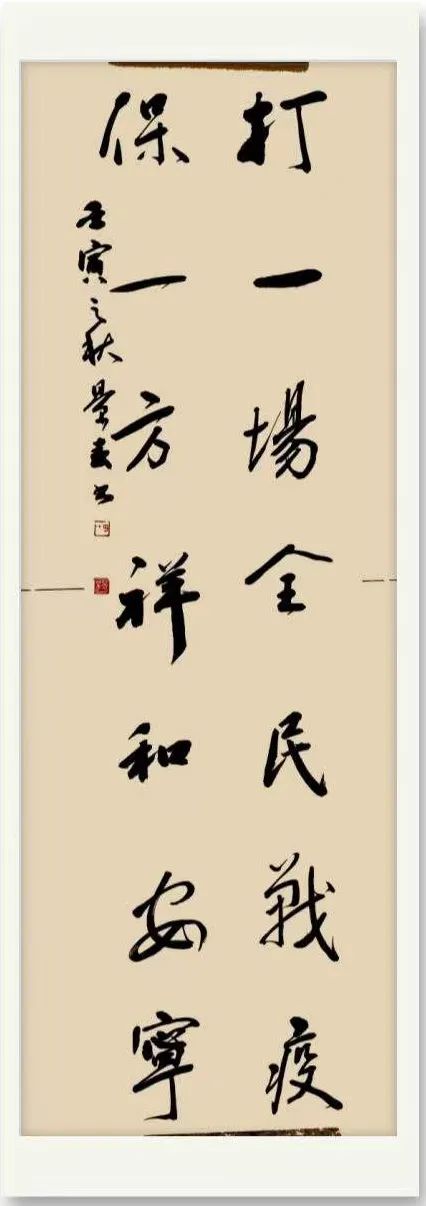 打一場全民戰疫
保一方祥和安寧
壬寅之秋景春书